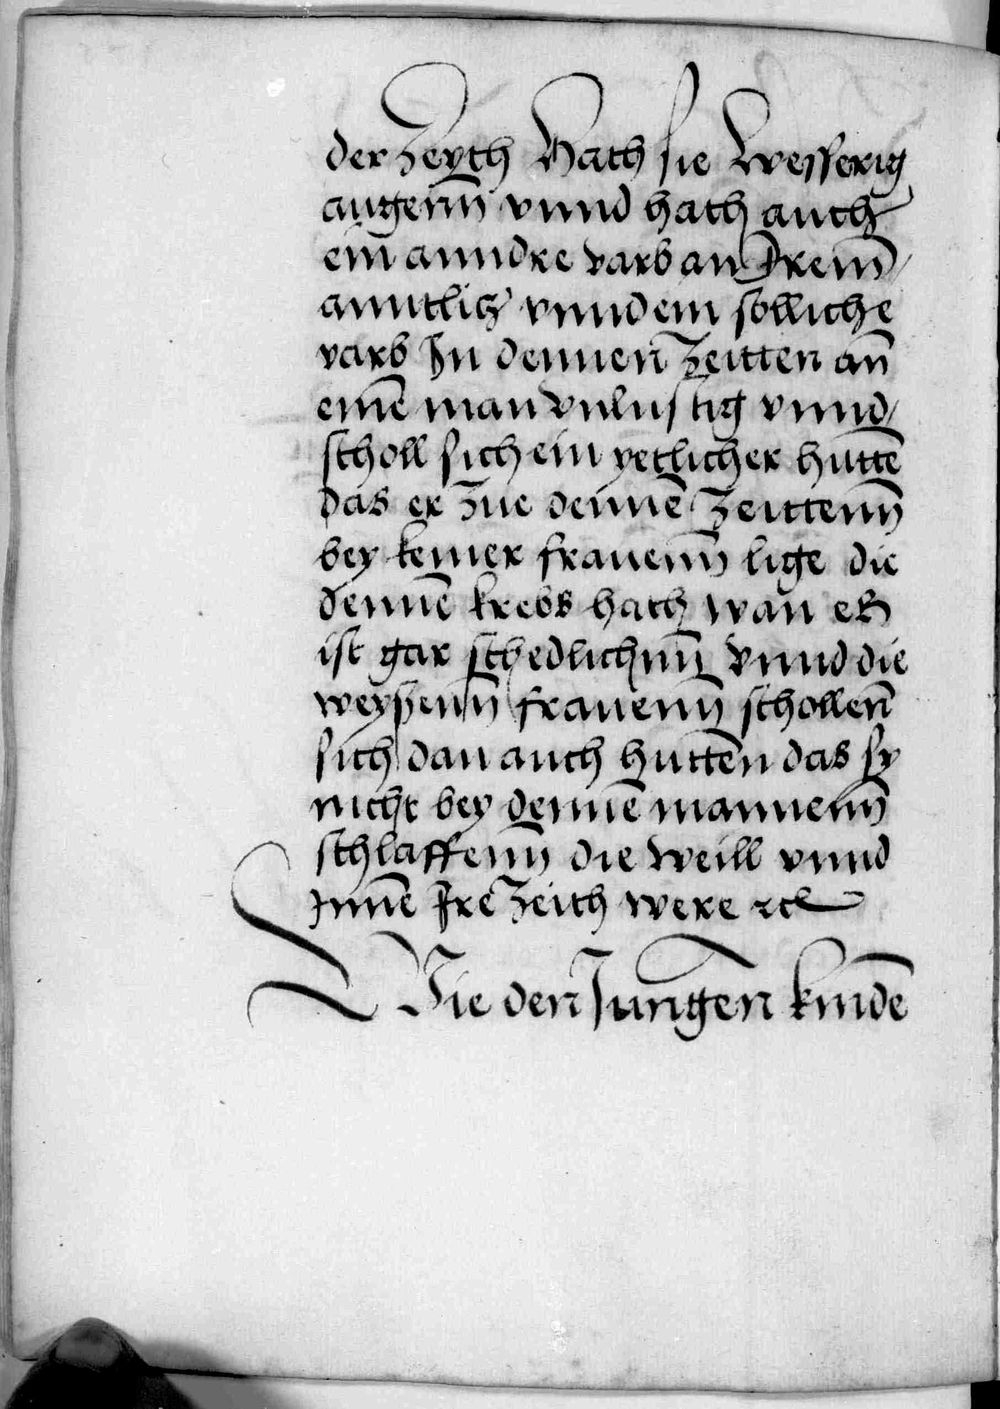 der Zeyth Hath sie Wesserig
augenn vnnd hath auch
ein anndre varb an Irem
anntlitz vnnd ein solliche
varb In dennen Zeitten an
einē man vnlustig vnnd
scholl sich ein yetlicher huttē
das er Zue dennē Zeittenn
bey keiner frauenn lige die
dennē krebs hath wan eß
ist gar schedlichnn vnnd die
weyßenn frauenn schollenn
sich dan auch huttēn das sy
nicht bey dennē mannenn
schlaffenn die weill vnnd
Innē Ire Zeith were etc
Wie den Jungen kindē